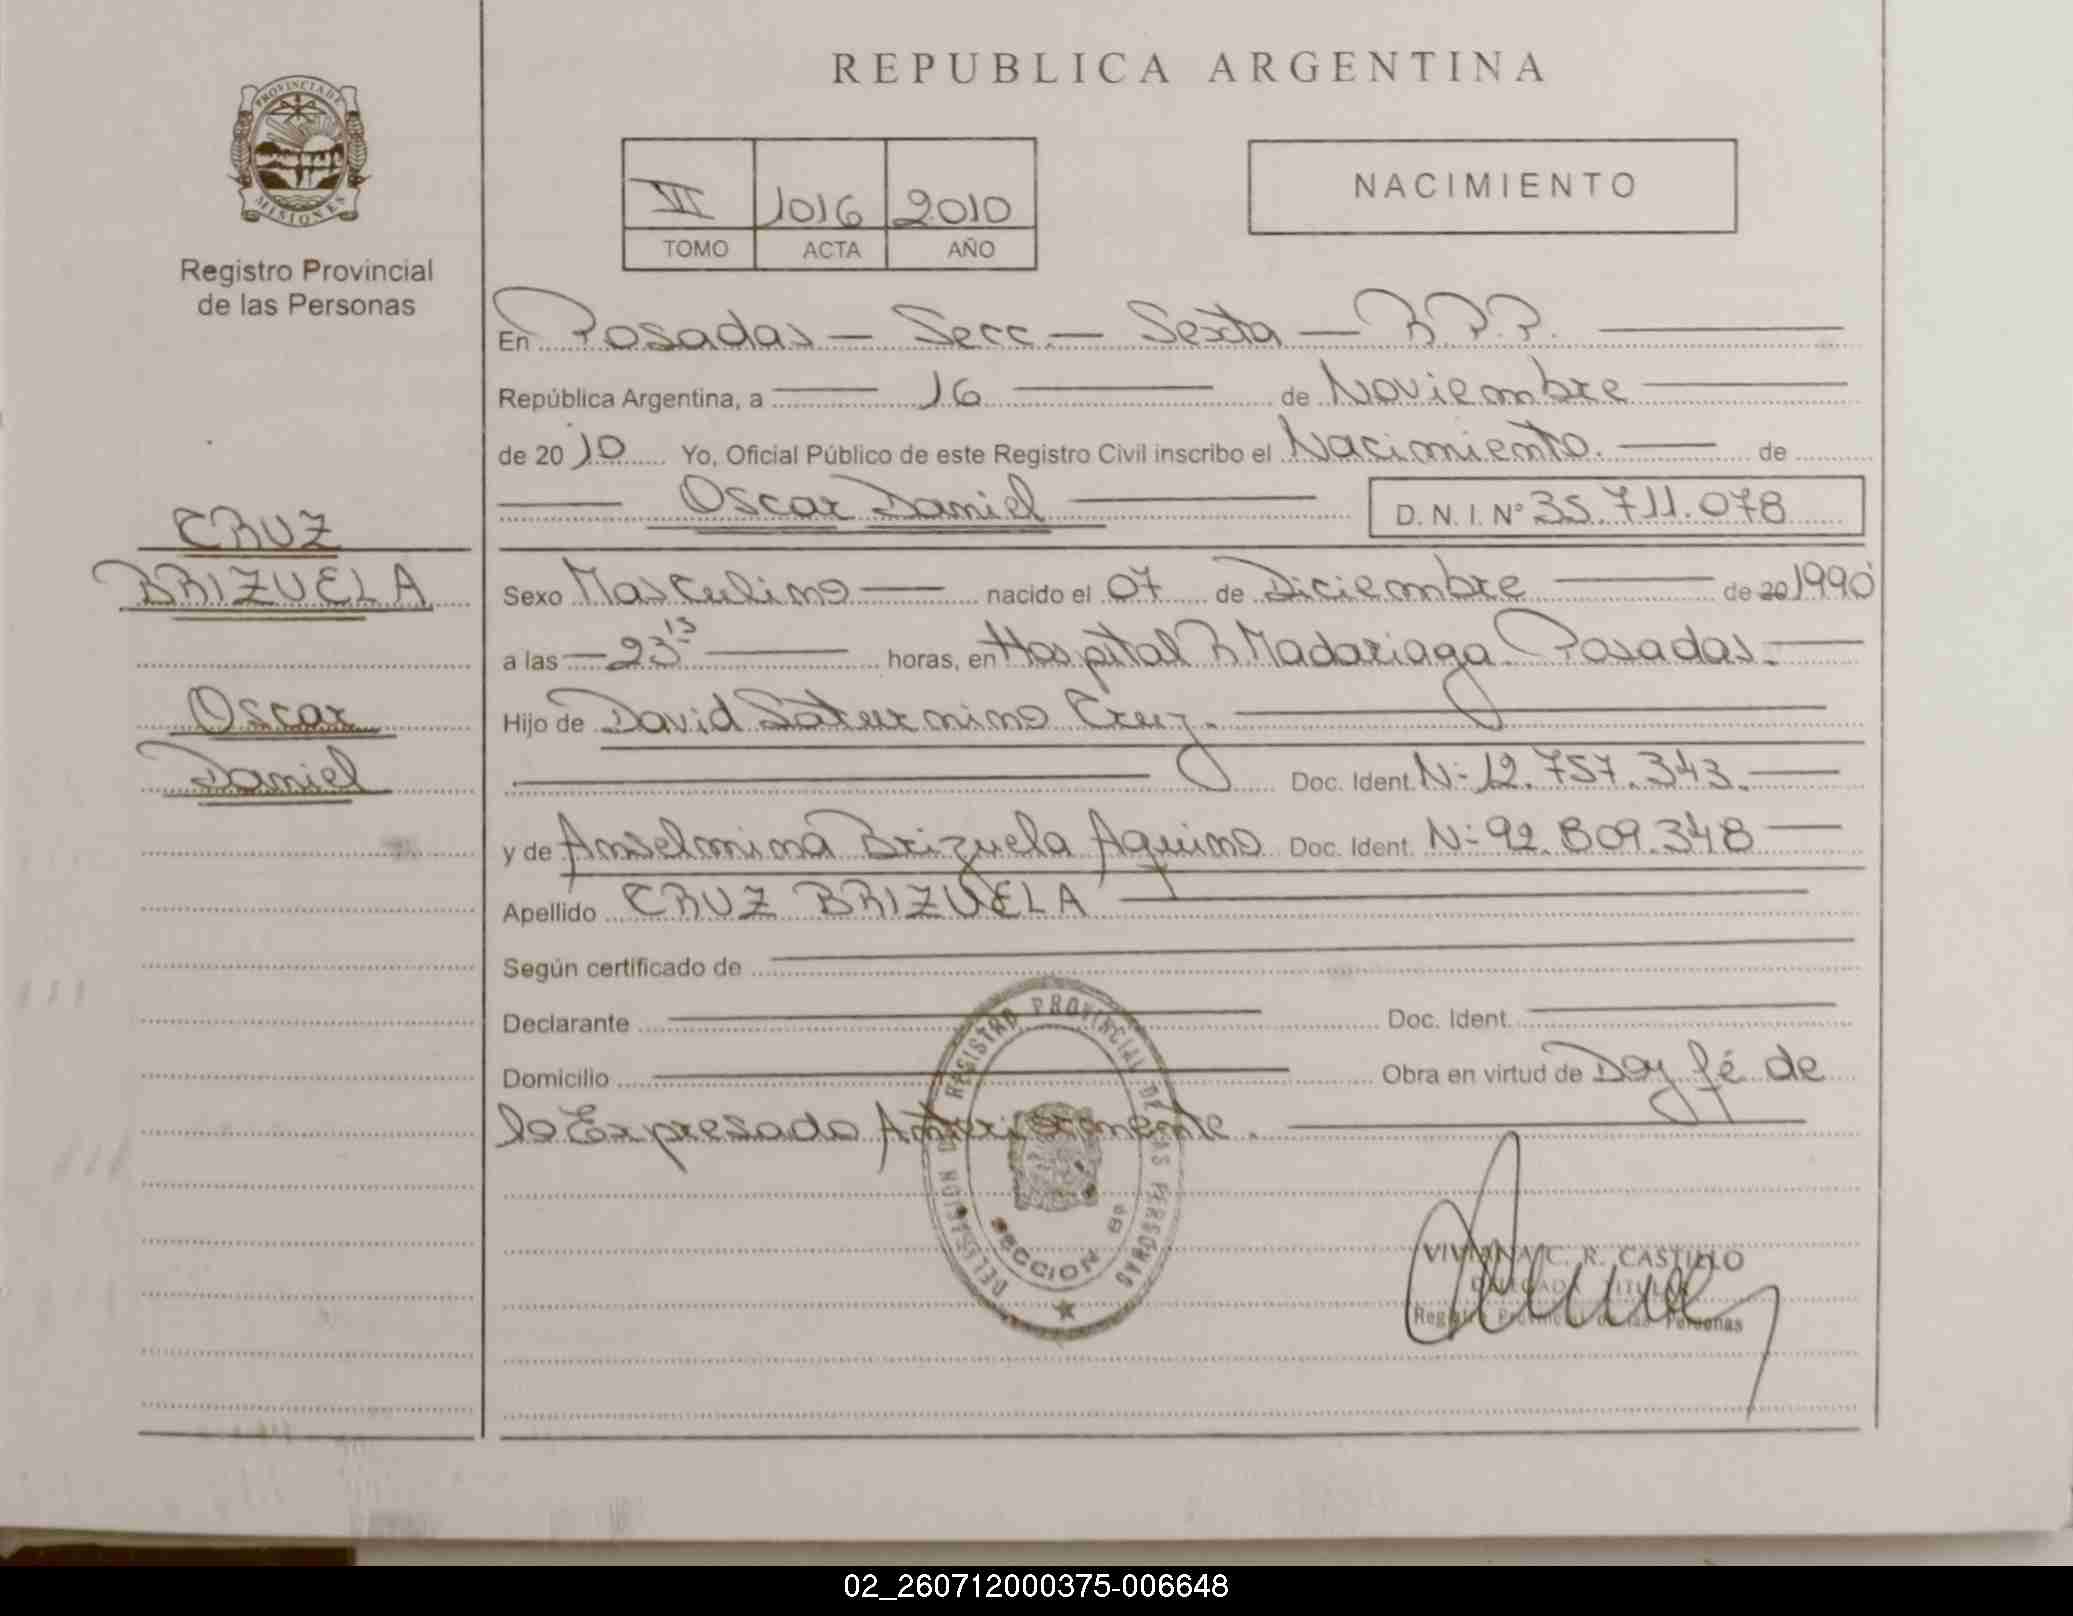 REPUBLICA ARGENTINA
PROVINCIA DE
MISIONES
Registro Provincial
de las Personas
VII 1016 2010
TOMO ACTA AÑO
NACIMIENTO
En Posadas — Secc. — Sexta — R.P.P.
República Argentina, a 16 de Noviembre
de 2010 Yo, Oficial Público de este Registro Civil inscribo el Nacimiento. de
Oscar Daniel D.N.I. Nº 35.711.078
CRUZ
BRIZUELA
Oscar
Daniel
Sexo Masculino nacido el 07 de Diciembre de 20 1990
a las 23 13 horas, en Hospital R Madariaga Posadas.
Hijo de David Saturnino Cruz.
Doc. Ident. N: 12.757.343.
y de Anselmina Brizuela Aquino Doc. Ident. N: 92.809.348
Apellido CRUZ BRIZUELA
Según certificado de
Declarante Doc. Ident.
Domicilio Obra en virtud de Doy fé de
lo Expresado Anteriormente.
DELEGACION DEL REGISTRO PROVINCIAL DE LAS PERSONAS
SECCION 6ª
VIVIANA C. R. CASTILLO
DELEGADA TITULAR
Registro Provincial de las Personas
02_260712000375-006648